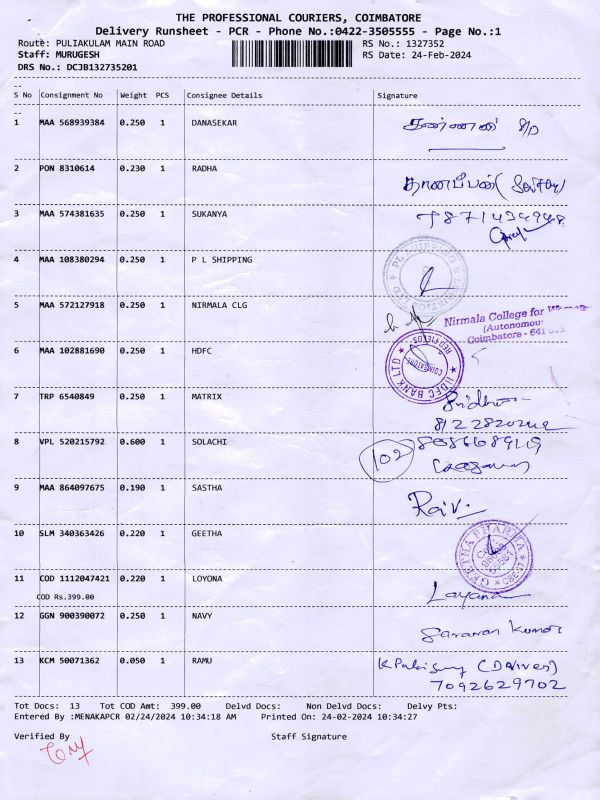 THE PROFESSIONAL COURIERS, COIMBATORE
Delivery Runsheet - PCR - Phone No.:0422-3505555 - Page No.:1
Route: PULIAKULAM MAIN ROAD RS No.: 1327352
Staff: MURUGESH RS Date: 24-Feb-2024
DRS No.: DCJB132735201
S No Consignment No Weight PCS Consignee Details Signature
1 MAA 568939384 0.250 1 DANASEKAR கண்ணன் S/O
2 PON 8310614 0.230 1 RADHA
3 MAA 574381635 0.250 1 SUKANYA
4 MAA 108380294 0.250 1 P L SHIPPING PL SHIPPING &
5 MAA 572127918 0.250 1 NIRMALA CLG Nirmala College for
(Autonomous
Coimbatore - 641
6 MAA 102881690 0.250 1 HDFC HDFC BANK LTD RED FIELDS COIMBATORE
7 TRP 6540849 0.250 1 MATRIX
8 VPL 520215792 0.600 1 SOLACHI 102
9 MAA 864097675 0.190 1 SASTHA Raiv.
10 SLM 340363426 0.220 1 GEETHA GEETHA PHARMA
11 COD 1112047421 0.220 1 LOYONA Layana
COD Rs.399.00
12 GGN 900390072 0.250 1 NAVY Saravan Kumar
13 KCM 50071362 0.050 1 RAMU (Driver)
7092629702
Tot Docs: 13 Tot COD Amt: 399.00 Delvd Docs: Non Delvd Docs: Delvy Pts:
Entered By :MENAKAPCR 02/24/2024 10:34:18 AM Printed On: 24-02-2024 10:34:27
Verified By Staff Signature